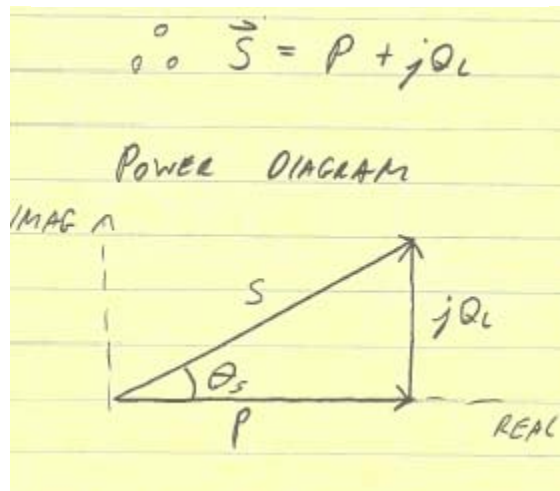 ∴ S⃗ = P + jQL
POWER DIAGRAM
IMAG
S
jQL
θs
P
REAL